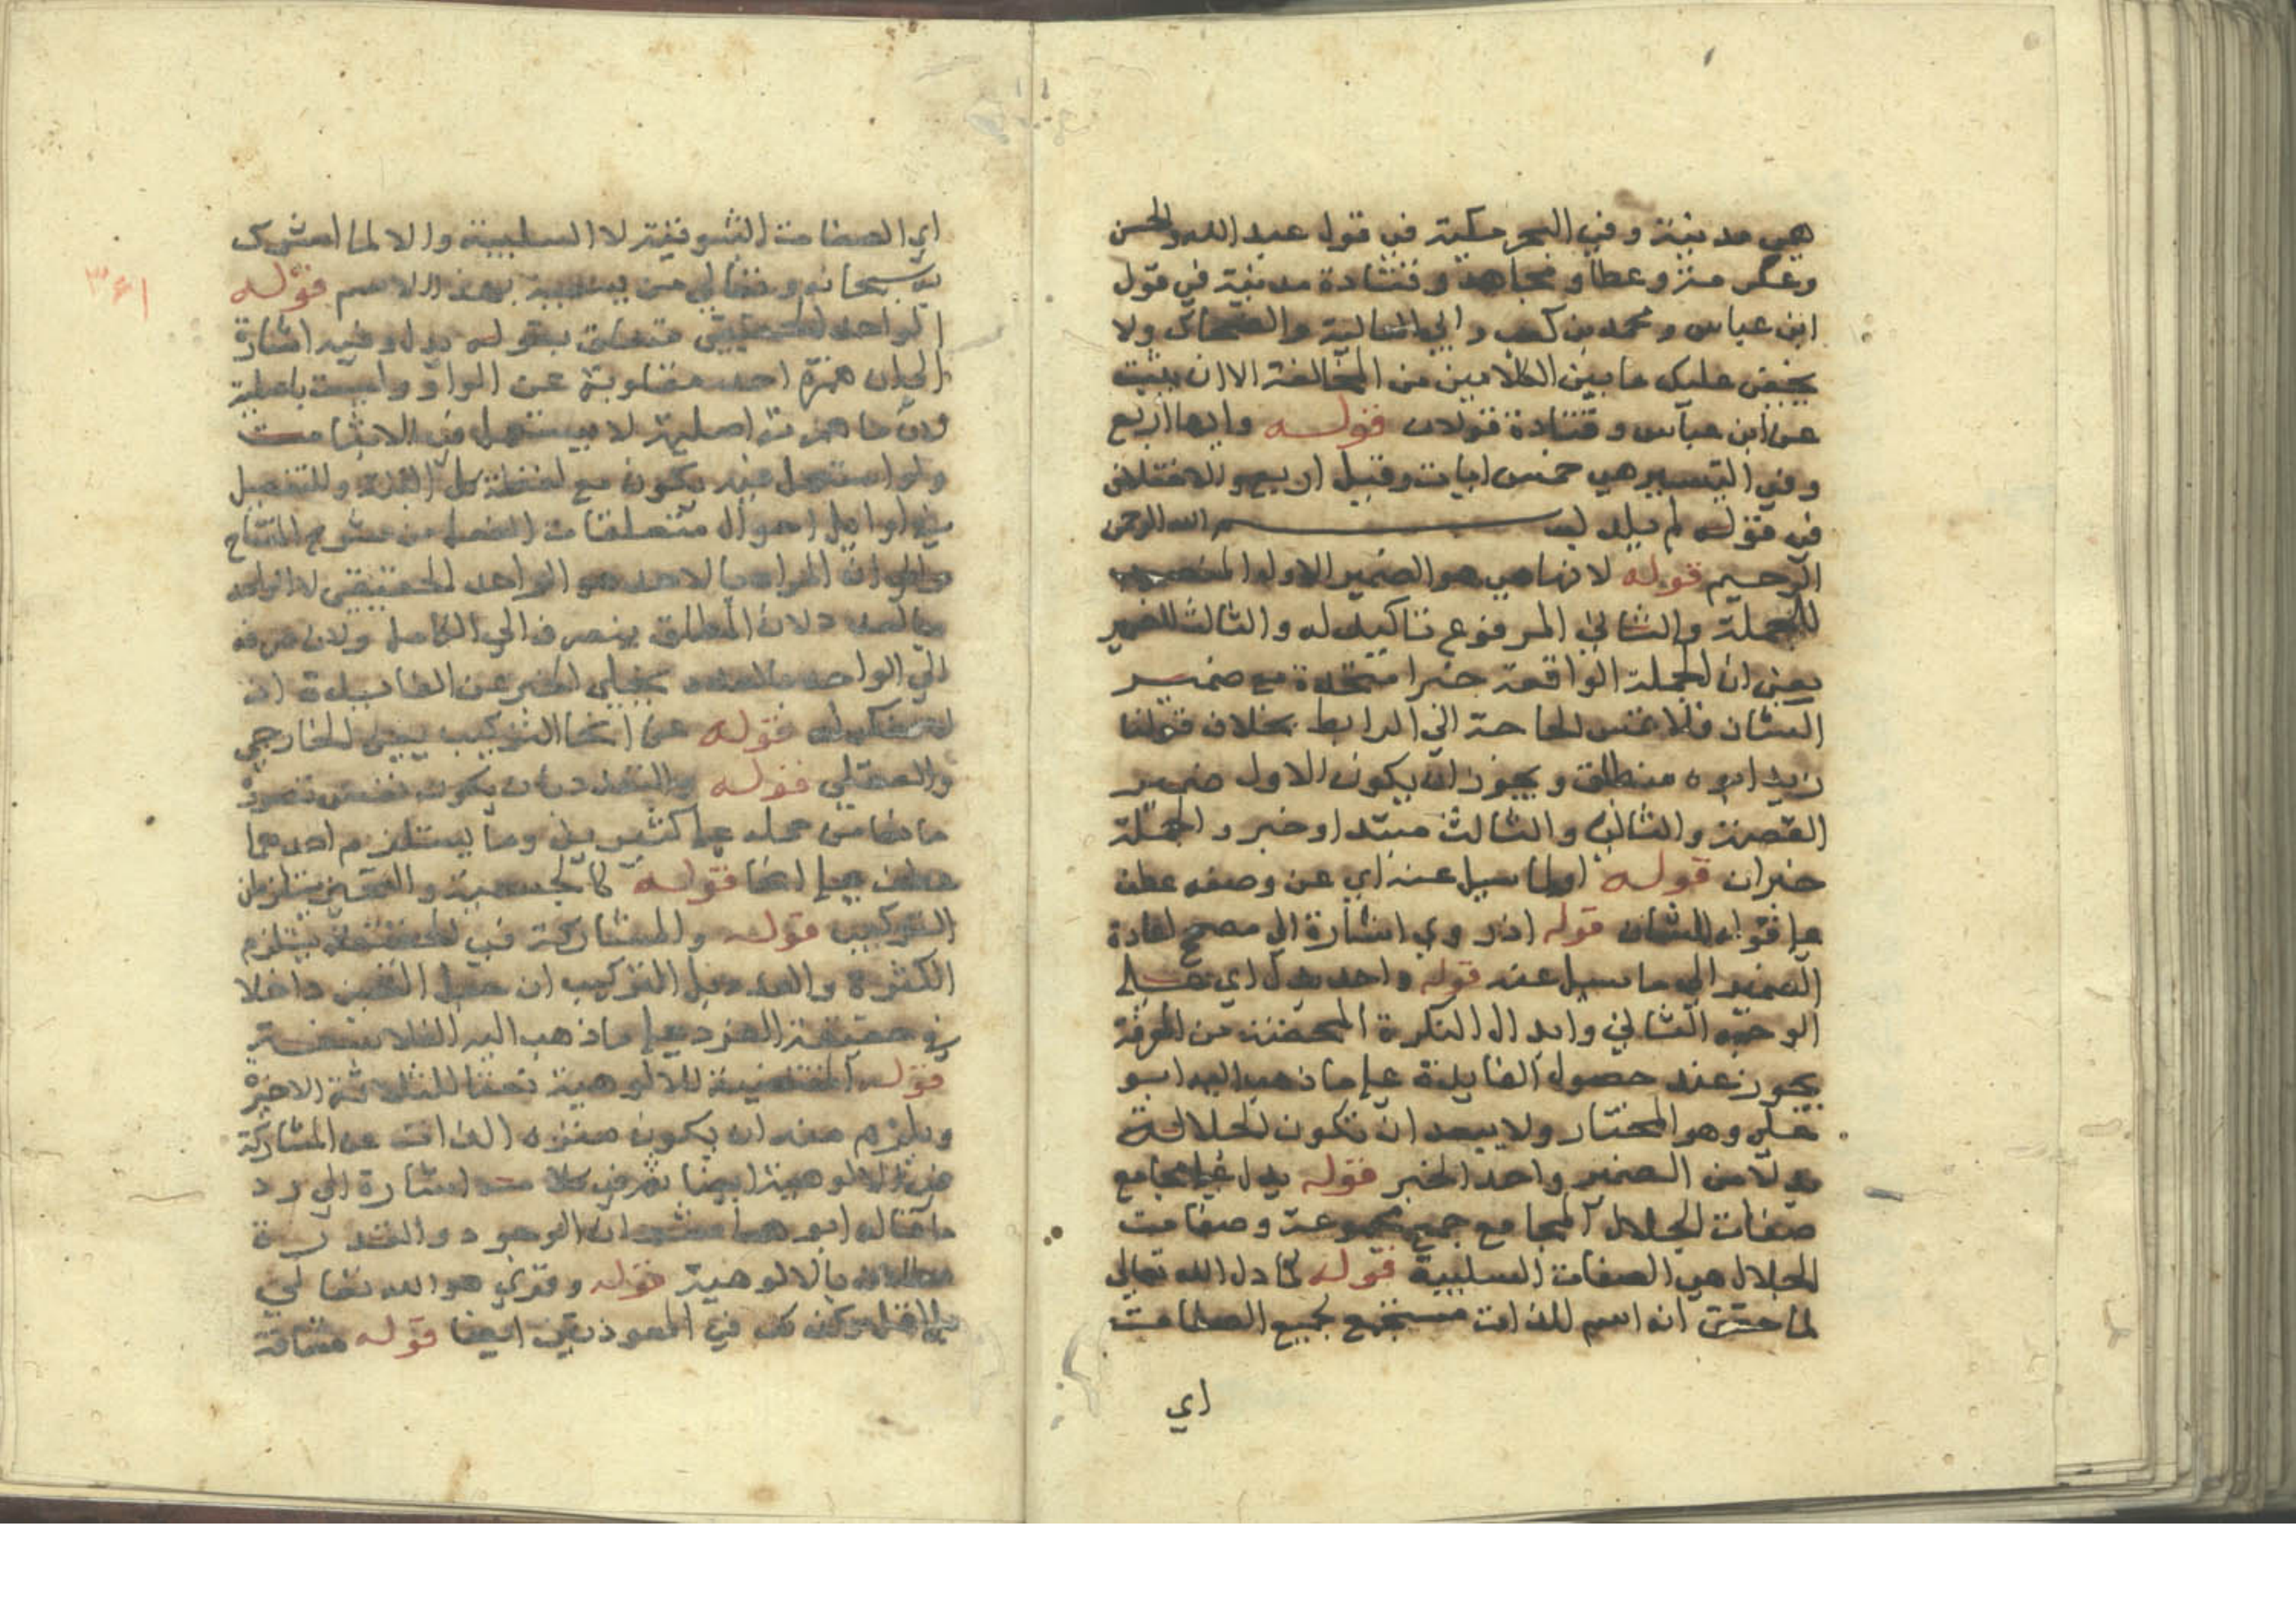 هي مدنية وفي البحر مكية في قول عبد الله والحسن
وعكرمة وعطا ومجاهد وقتادة مدنية في قول
ابن عباس ومحمد بن كعب وابي العالية والضحاك ولا
يخفى عليك ما بين الكلامين من المخالفة الا ان يثبت
عن ابن عباس وقتادة قولان قوله وايها اربع
وفي التيسير هي خمس ايات وقيل اربع والاختلاف
في قوله لم يلد بســـم الله الرحمن
الرحيم قوله لانها هي هو الضمير الاول المنصوب
للجملة والثاني المرفوع تاكيد له والثالث للضمير
يعني ان الجملة الواقعة خبرا متحدة مع ضمير
الشان فلا تمس الحاجة الى الرابط بخلاف قولنا
زيد ابوه منطلق ويجوز ان يكون الاول ضمير
القصة والثاني والثالث مبتدا وخبر والجملة
خبران قوله او لما سيل عنه اي عن وصفه عطف
على قوله للشان قوله اذ روي اشارة الى مصحح اعادة
الضمير الى ما سيل عنه قوله واحد بدل اي على
الوجه الثاني وابدال النكرة المحضة من المعرفة
يجوز عند حصول الفايدة على ما ذهب اليه ابو
علي وهو المختار ولا يبعد ان تكون الجلالة
بدلا من الضمير واحد الخبر قوله يدل على مجامع
صفات الجلال المجامع جمع مجموعة وصفات
الجلال هي الصفات السلبية قوله كما دل الله تعالى
لما حقق انه اسم للذات مستجمع لجميع الصفات
اي
اي الصفات الثبوتية لا السلبية والا لما اشرك
به سبحانه وتعالى من يسميه بهذا الاسم قوله
الواحد الحقيقي متعلق بقوله يدل وفيه اشارة
الى ان همزة احد مقلوبة عن الواو وليست باصلية
لان ما همزته اصلية لا يستعمل في الاثبات
ولو استعمل فيه يكون مع لفظة كل البتة وللتفصيل
في اوايل احوال متعلقات الفعل من شروح المفتاح
والى ان المراد بالاحد هو الواحد الحقيقي لا الواحد
بالعدد لان المطلق ينصرف الى الكامل ولان صرفه
الى الواحد بالعدد يخلي الخبر عن الفايدة اذ
قوله عن انحا التركيب يعني الخارجي
والعقلي قوله والتعدد بان يكون نفس تصوره
مانعا من حمله على كثيرين وما يستلزم احدهما
عطف على انحا قوله كالجسمية والتحيز يستلزمان
التركيب قوله والمشاركة في الحقيقة يستلزم
الكثرة والعدد بل التركيب ان جعل التعين داخلا
في حقيقة الفرد على ما ذهب اليه الفلاسفة
قوله المقتضية للالوهية نعتا للثلاثة الاخيرة
ويلزم منه ان يكون منزه الذات عن المشاركة
في الالوهية ايضا ثم في كلامه اشارة الى رد
ما قاله ابو هاشم ان الوجود والقدرة
معللان بالالوهية قوله وقري هو الله تعالى
بلا قل وكذلك في المعوذتين ايضا قوله مشاقة
٣٤١